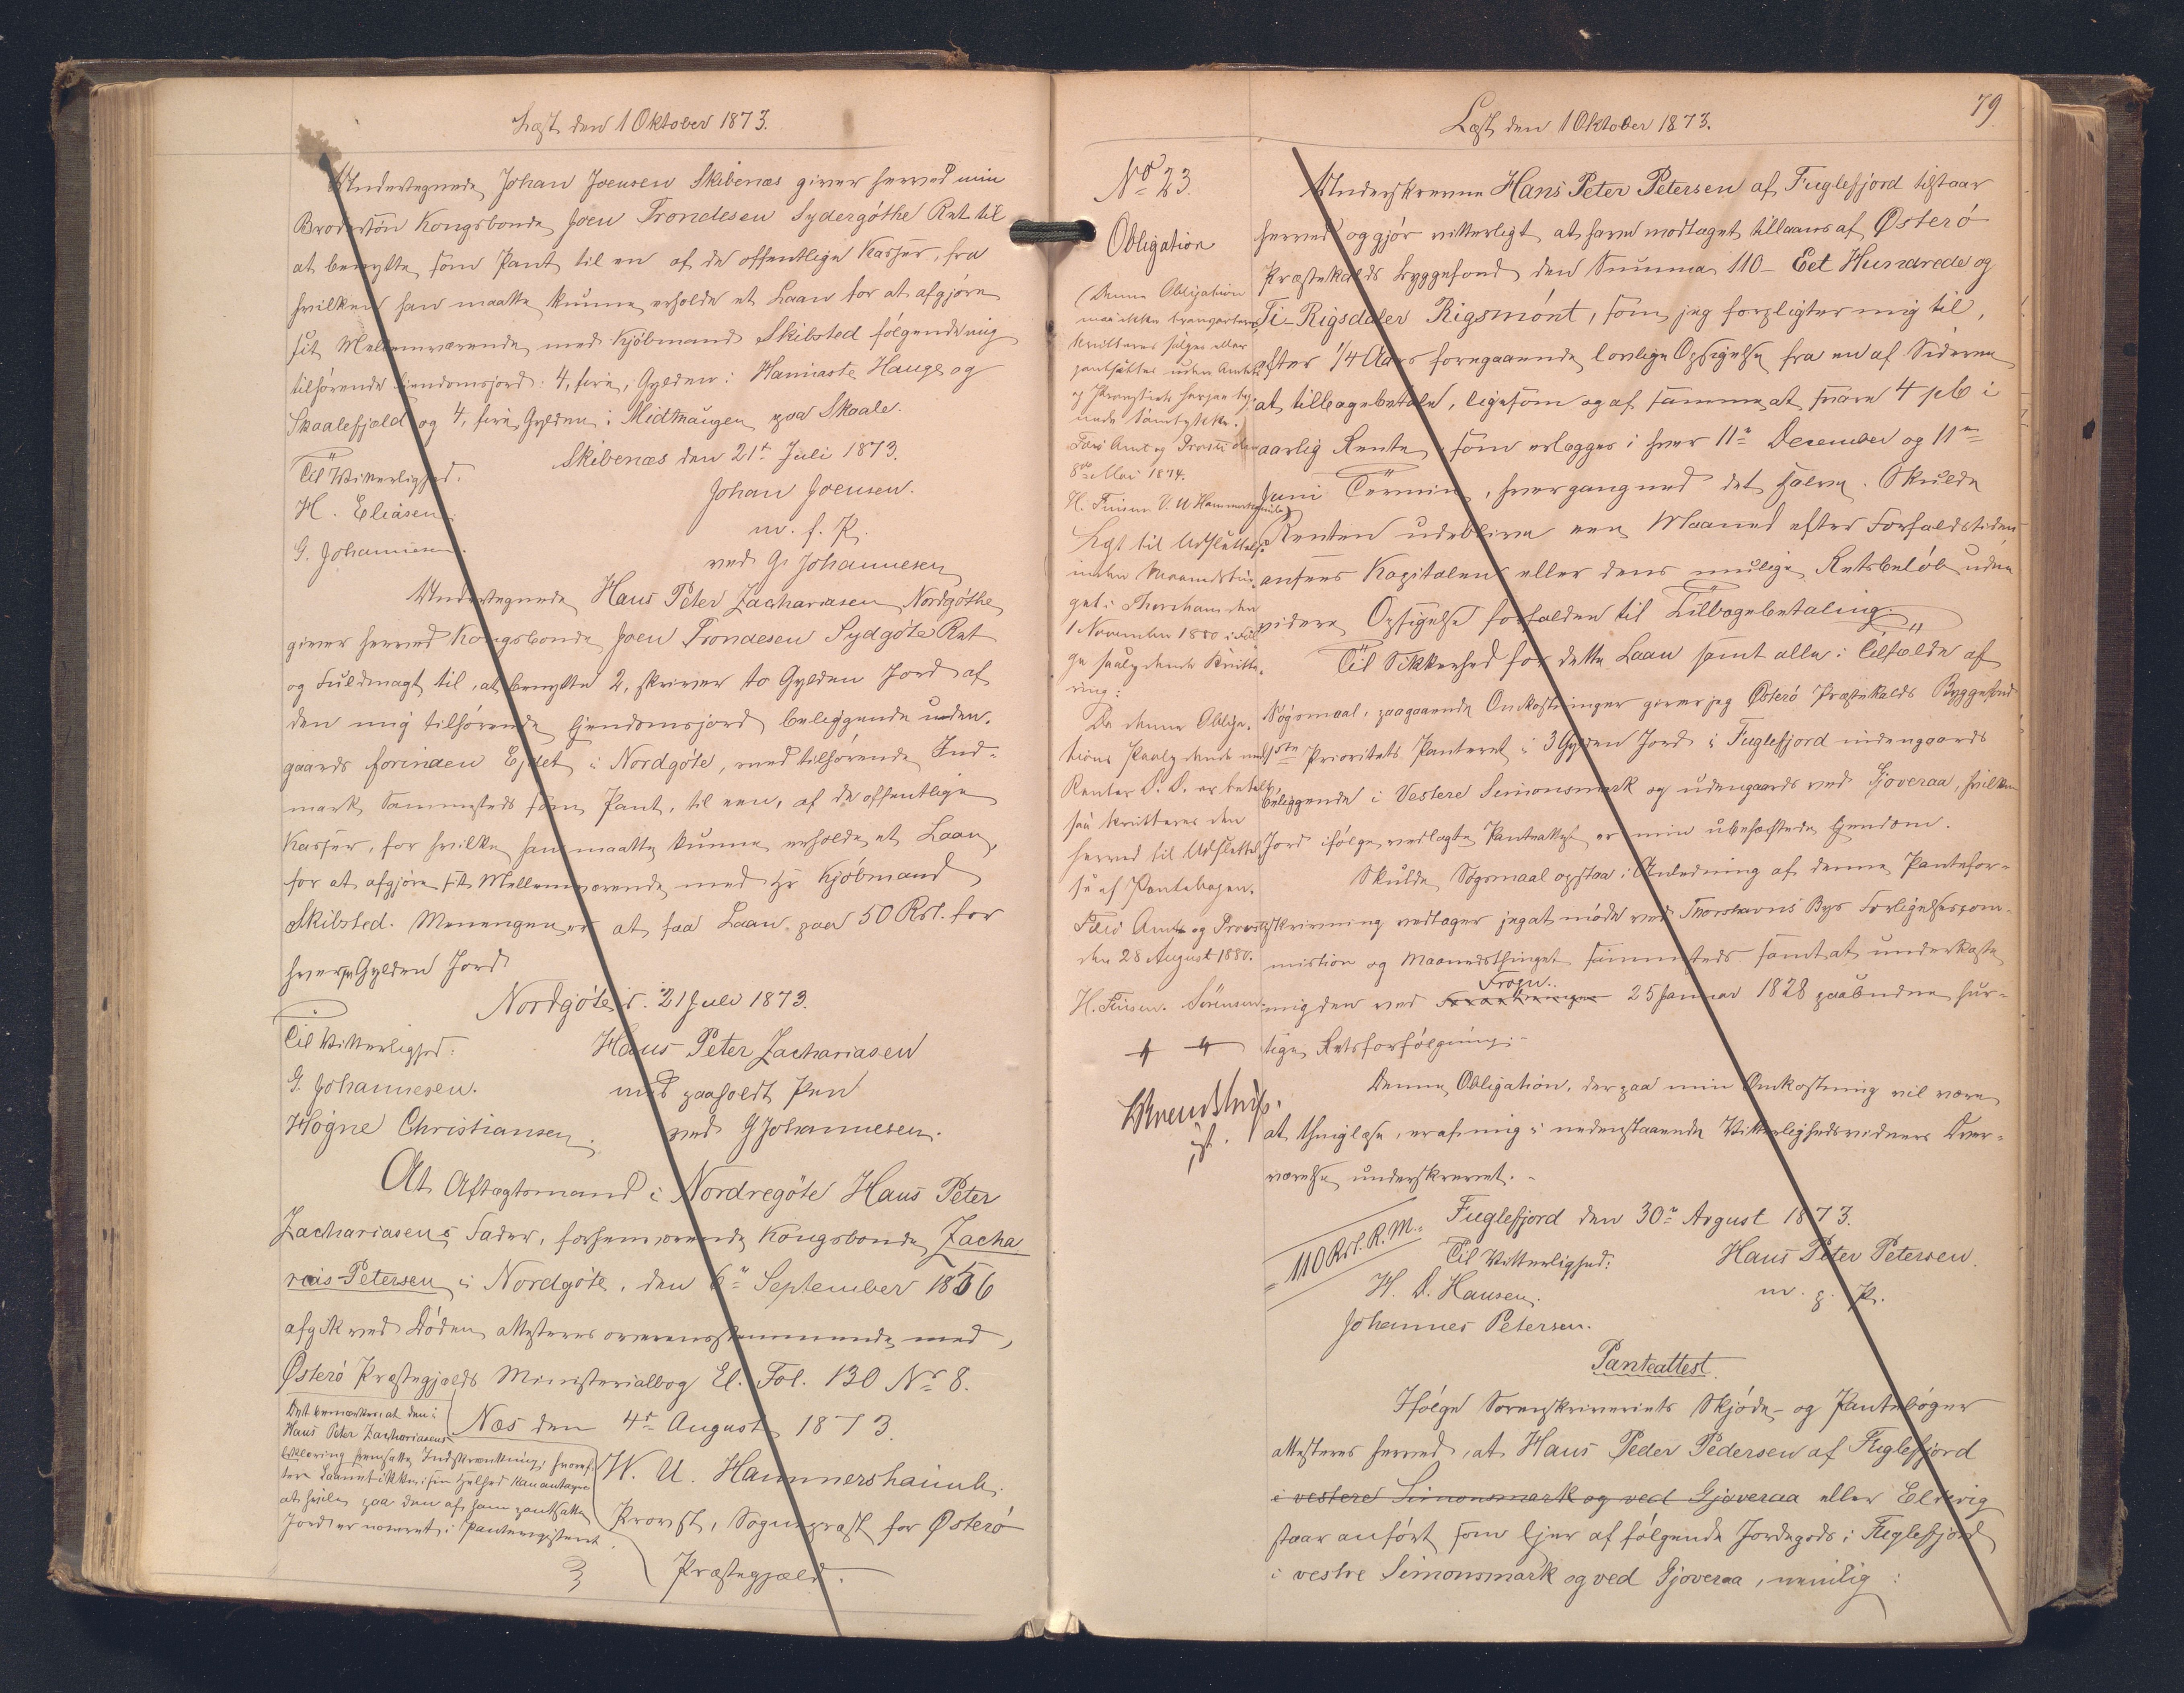 Læst den 1 Oktober 1873.
Undertegnede Johan Joensen Skibenæs giver herved min
Brodersön Kongsbonde Joen Trondesen Sydergöthe Ret til
at benytte som Pant til en af de offentlige Kasser, fra
hvilken han maatte kunne erholde et Laan for at afgjöre
sit Mellemværende med Kjöbmand Skibsted følgende mig
tilhörende Eiendomsjord: 4, fire, Gylden i Hamaste Hauge og
Skaalefjæld og 4, fire Gylden i Midthaugen paa Skaale.
Skibenæs den 21t Juli 1873.
Til Vitterlighed:
Johan Joensen.
H. Eliasen.
m. f. P.
G. Johannesen.
ved G. Johannesen
Undertegnede Hans Peter Zachariasen Nordgöthe
giver herved Kongsbonde Joen Trondesen Sydgöte Ret
og Fuldmagt til, at benytte 2, skriver to Gylden Jord af
den mig tilhörende Ejendomsjord beliggende uden-
gaards forinden Ejdet i Nordgöte, med tilhörende Ind-
mark sammesteds som Pant, til een, af de offentlige
Kasser, for hvilke han maatte kunne erholde et Laan,
for at afgjöre sit Mellemværende med Hr Kjöbmand
Skibsted. Meningen er at faa Laan paa 50 Rdl. for
hver Gylden Jord
Nordgöte d. 21 Juli 1873.
Til Vitterlighed:
Hans Peter Zachariasen
G. Johannesen.
med paaholdt Pen
Högne Christiansen.
ved G Johannesen.
At Aftægtsmand i Nordregöte Hans Peter
Zachariasens Fader, forhenværende Kongsbonde Zacha
rias Petersen i Nordgöte, den 6te September 1856
afgik ved Döden attesteres overensstemmende med
Österö Præstegjælds Ministerialbog El. Fol. 130 No 8.
Næs den 4de August 1873.
W. U. Hammershaimb.
Provst, Sognepræst for Österö
Præstegjæld.
Det bemærkes at den i
Hans Peter Zachariasens
Erklæring fremsatte Indskrænkning, hvoref-
ter Laanet ikke i sin Helhed kan antages
at hvile paa den af ham pantsatte
Jord er noteret i Panteregistret.
79
Læst den 1 Oktober 1873.
No 23.
Obligation
(Denne Obligation
maa ikke transporteres
kvitteres sælges eller
pantsættes uden Amtets
og Provstiets herpaa teg-
nede Samtykke.
Færö Amt og Provsti den
8de Mai 1874.
H. Finsen V. U Hammershaimb)
Læst til Udslettelse
inden Maanedsthin-
get i Thorshavn den
1 November 1880 i Föl-
ge saalydende Kvitte-
ring:
Da denne Obliga-
tions Paalydende med
Renter D. D. er betalt,
saa kvitteres den
herved til Udslettel-
se af Pantebogen.
Færö Amt og Provsti
den 28 August 1880.
H. Finsen. Sörensen
Underskrevne Hans Peter Petersen af Fuglefjord tilstaar
herved og gjör vitterligt at have modtaget tillaans af Österö
Præstekalds Byggefond den Summa 110 - Eet Hundrede og
Ti - Rigsdaler Rigsmönt, som jeg forpligter mig til,
efter 1/4 Aars foregaaende lovlig Opsigelse fra en af Siderne
at tilbagebetale, ligesom og af samme at svare 4 pCt i
aarlig Rente, som erlægges i hver 11te December og 11te
Juni Termin, hver gang med det halve. Skulde
Renten udeblive een Maaned efter Forfaldstiden
ansees Kapitalen eller dens mulige Restbelöb uden
videre Opsigelse forfalden til Tilbagebetaling.
Til Sikkerhed for dette Laan samt alle i Tilfælde af
Sögsmaal, paagaaende Omkostninger giver jeg Österö Præstekalds Byggefond
1ste Prioritets Panteret i 3 Gylden Jord i Fuglefjord indengaards
beliggende i Vestere Simonsmark og udengaards ved Gjoveraa, hvilken
Jord ifölge vedlagte Panteattest er min ubehæftede Ejendom.
Skulde Sögsmaal opstaa i Anledning af denne Pantefor-
skrivning vedtager jeg at möde ved Thorshavns Byes Forligelsescom-
mission og Maanedsthinget sammesteds samt at underkaste
mig den ved Frogn. 25 Januar 1828 paabudne hur-
tige Retsforfölgning. -
Denne Obligation, der paa min Omkostning vil være
at thinglæse, er af mig i nedenstaaende Vitterlighedsvidners Over-
værelse underskrevet. -
Fuglefjord den 30te August 1873.
110 Rdl. R. M.
Til Vitterlighed:
Hans Peter Petersen.
H. D. Hansen.
m. p. P.
Johannes Petersen.
Panteattest
Ifölge Sorenskriveriets Skjöde- og Panteböger
attesteres herved, at Hans Peder Pedersen af Fuglefjord
i vestere Simonsmark og ved Gjoveraa eller Eldevig
staar anfört som Ejer af fölgende Jordegods i Fuglefjord
i vestre Simonsmark og ved Gjoveraa, nemlig: